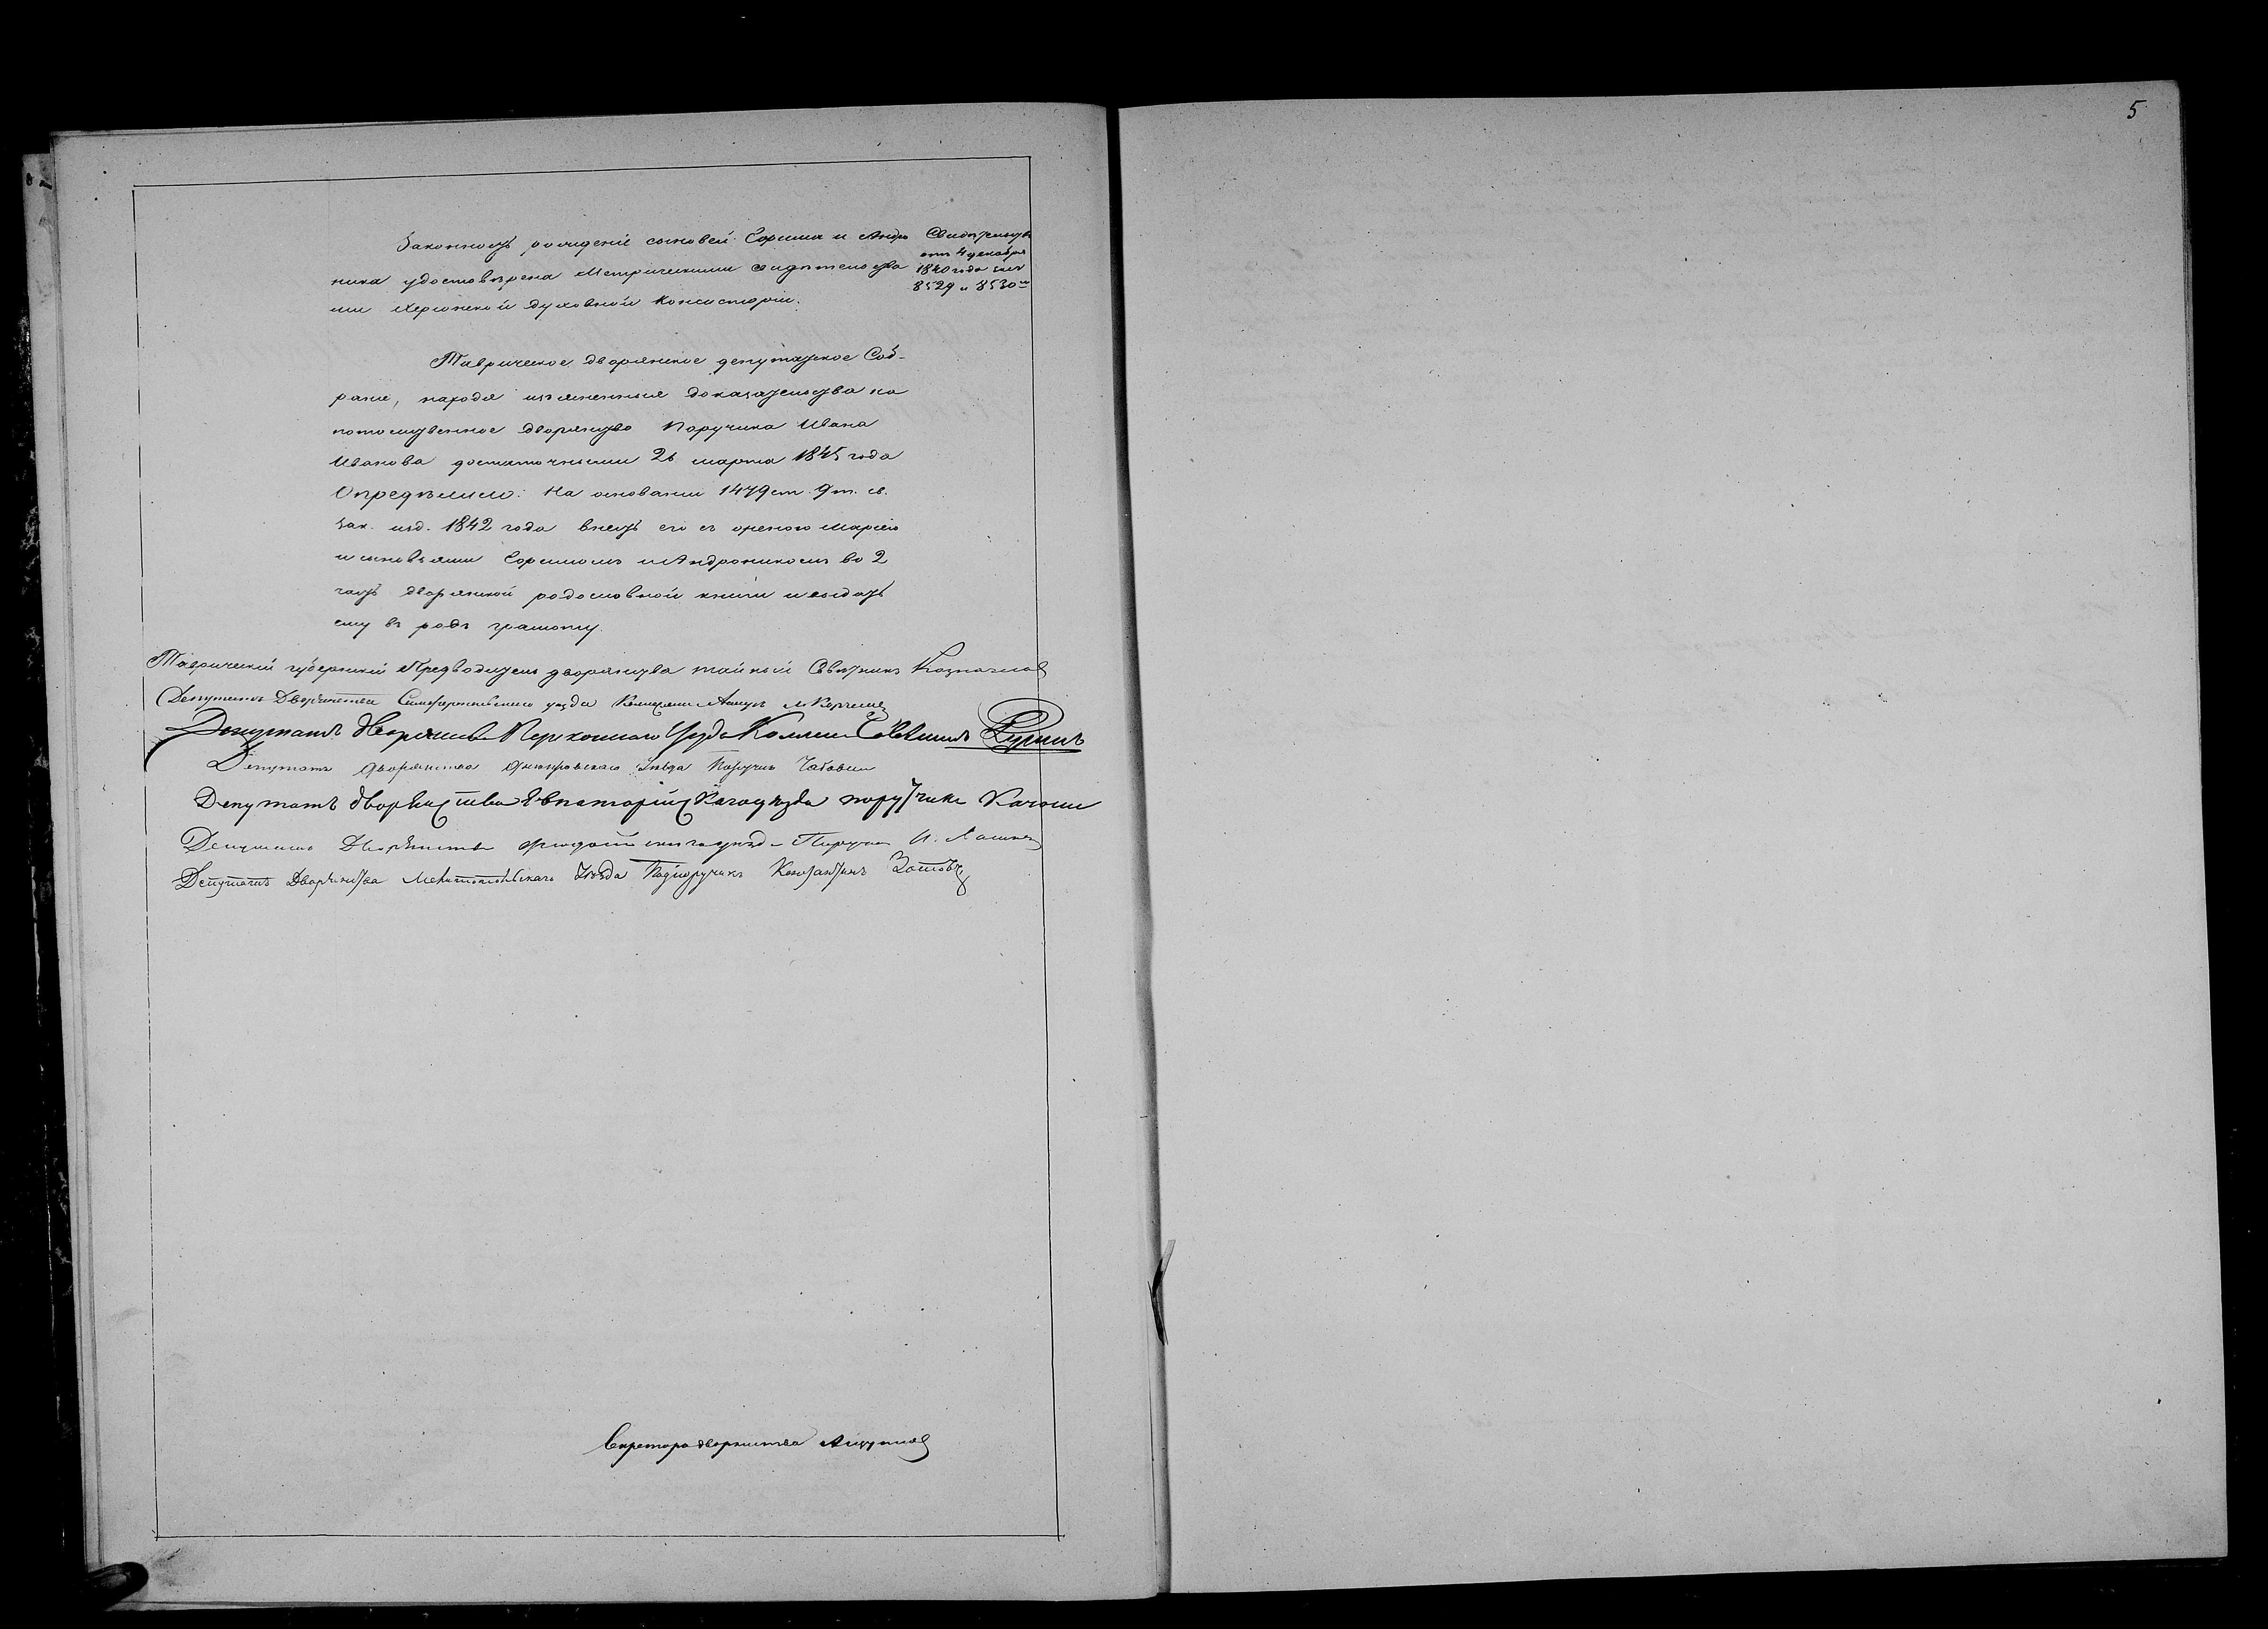 5
Законность рождения сыновей Ефима и Андро
ника удостоверена Метрическими свидетельства
ми Херсонской духовной Консистории.
Свидетельства
отъ 4 декабря
1840 года за №
8529 и 8530м
Таврическое дворянское депутатское Соб-
рание, находя изъясненныя доказательства на
потомственное дворянство Поручика Ивана
Иванова достаточными 26 марта 1845 года
Определило: На основании 1479 ст. 9 т. св.
зак. изд. 1842 года внесть его съ женою Мариею
и сыновьями и Андроникомъ во 2
часть дворянской родословной книги и выдать
ему въ родъ грамоту.
Таврический губернский Предводитель дворянства тайный Советникъ Казначеев
Депутатъ Дворянства Симферопольского уезда
Депутатъ Дворянства Перекопского Уезда Коллеж. Советникъ
Депутатъ Дворянства Днепровскаго Уезда Поручик
Депутатъ дворянства Евпаторийскагоуезда поручикъ
Депутатъ Дворянства Феодосийскагоуезда Поручик
Депутатъ Дворянства Мелитопольскаго Уезда Подпоручикъ Константинъ Зотовъ
Секретарь дворянства